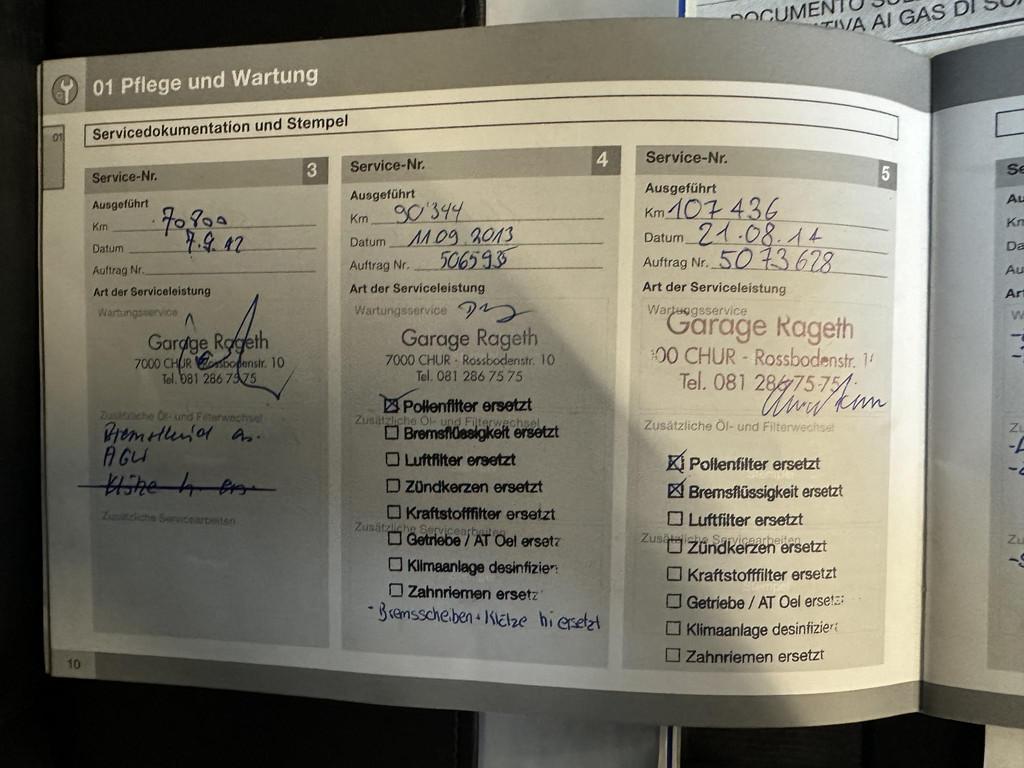 DOCUMENTO SU
TIVA AI GAS DI
01 Pflege und Wartung
01
Servicedokumentation und Stempel
Service-Nr. 3
Ausgeführt
Km 70800
Datum 7.9.12
Auftrag Nr.
Art der Serviceleistung
Wartungsservice
Garage Rageth
7000 CHUR - Rossbodenstr. 10
Tel. 081 286 75 75
Zusätzliche Öl- und Filterwechsel
AGW
Klötze h. ers.
Zusätzliche Servicearbeiten
Service-Nr. 4
Ausgeführt
Km 90'344
Datum 11 09. 2013
Auftrag Nr. 5065935
Art der Serviceleistung
Wartungsservice
Garage Rageth
7000 CHUR - Rossbodenstr. 10
Tel. 081 286 75 75
Pollenfilter ersetzt
Zusätzliche Öl- und Filterwechsel
Bremsflüssigkeit ersetzt
Luftfilter ersetzt
Zündkerzen ersetzt
Kraftstofffilter ersetzt
Zusätzliche Servicearbeiten
Getriebe / AT Oel ersetz
Klimaanlage desinfizier
Zahnriemen ersetz
- Bremsscheiben + Klötze hi ersetzt
Service-Nr. 5
Ausgeführt
Km 107 436
Datum 21.08.14
Auftrag Nr. 5073628
Art der Serviceleistung
Wartungsservice
Garage Rageth
00 CHUR - Rossbodenstr. 1
Tel. 081 286 75 75
Zusätzliche Öl- und Filterwechsel
Pollenfilter ersetzt
Bremsflüssigkeit ersetzt
Luftfilter ersetzt
Zusätzliche Servicearbeiten
Zündkerzen ersetzt
Kraftstofffilter ersetzt
Getriebe / AT Oel ersetz
Klimaanlage desinfizier
Zahnriemen ersetzt
10